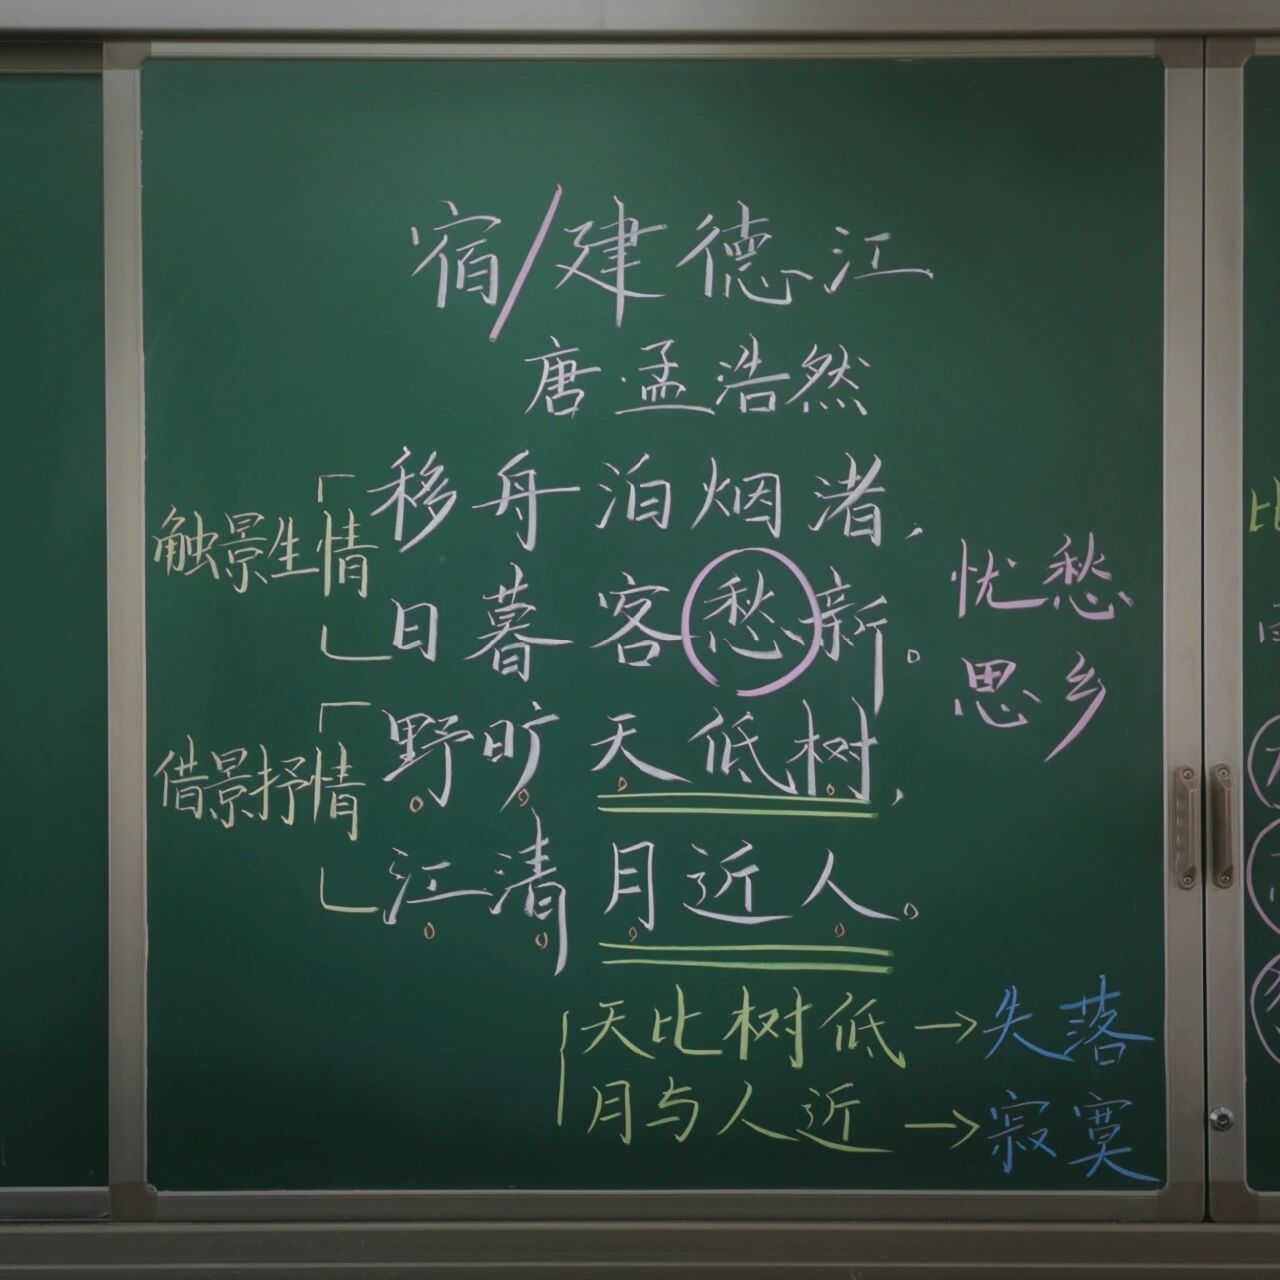 宿/建德江
唐·孟浩然
触景生情
移舟泊烟渚,
日暮客愁新。
忧愁
思乡
借景抒情
野旷天低树,
江清月近人。
天比树低→失落
月与人近→寂寞
比